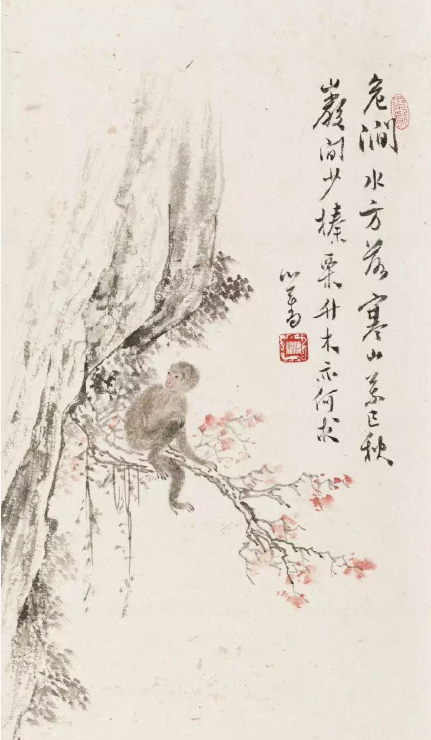 危澗水方落寒山葉已秋
巖間少榛栗升木亦何求
心畬